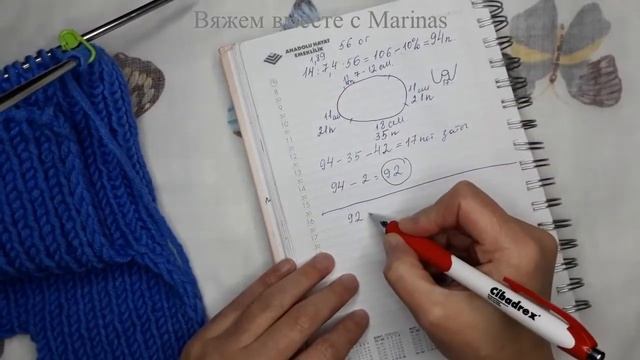 Вяжем вместе с Marinas
ANADOLU HAYAT
EMEKLİLİK
56 ог
1,89
14:7,4·56=106-10%=94п
7-12см
11см
21п
11см
21п
18см
35п
94-35-42=17пет. заты
94-2=92
92
Cibadrex